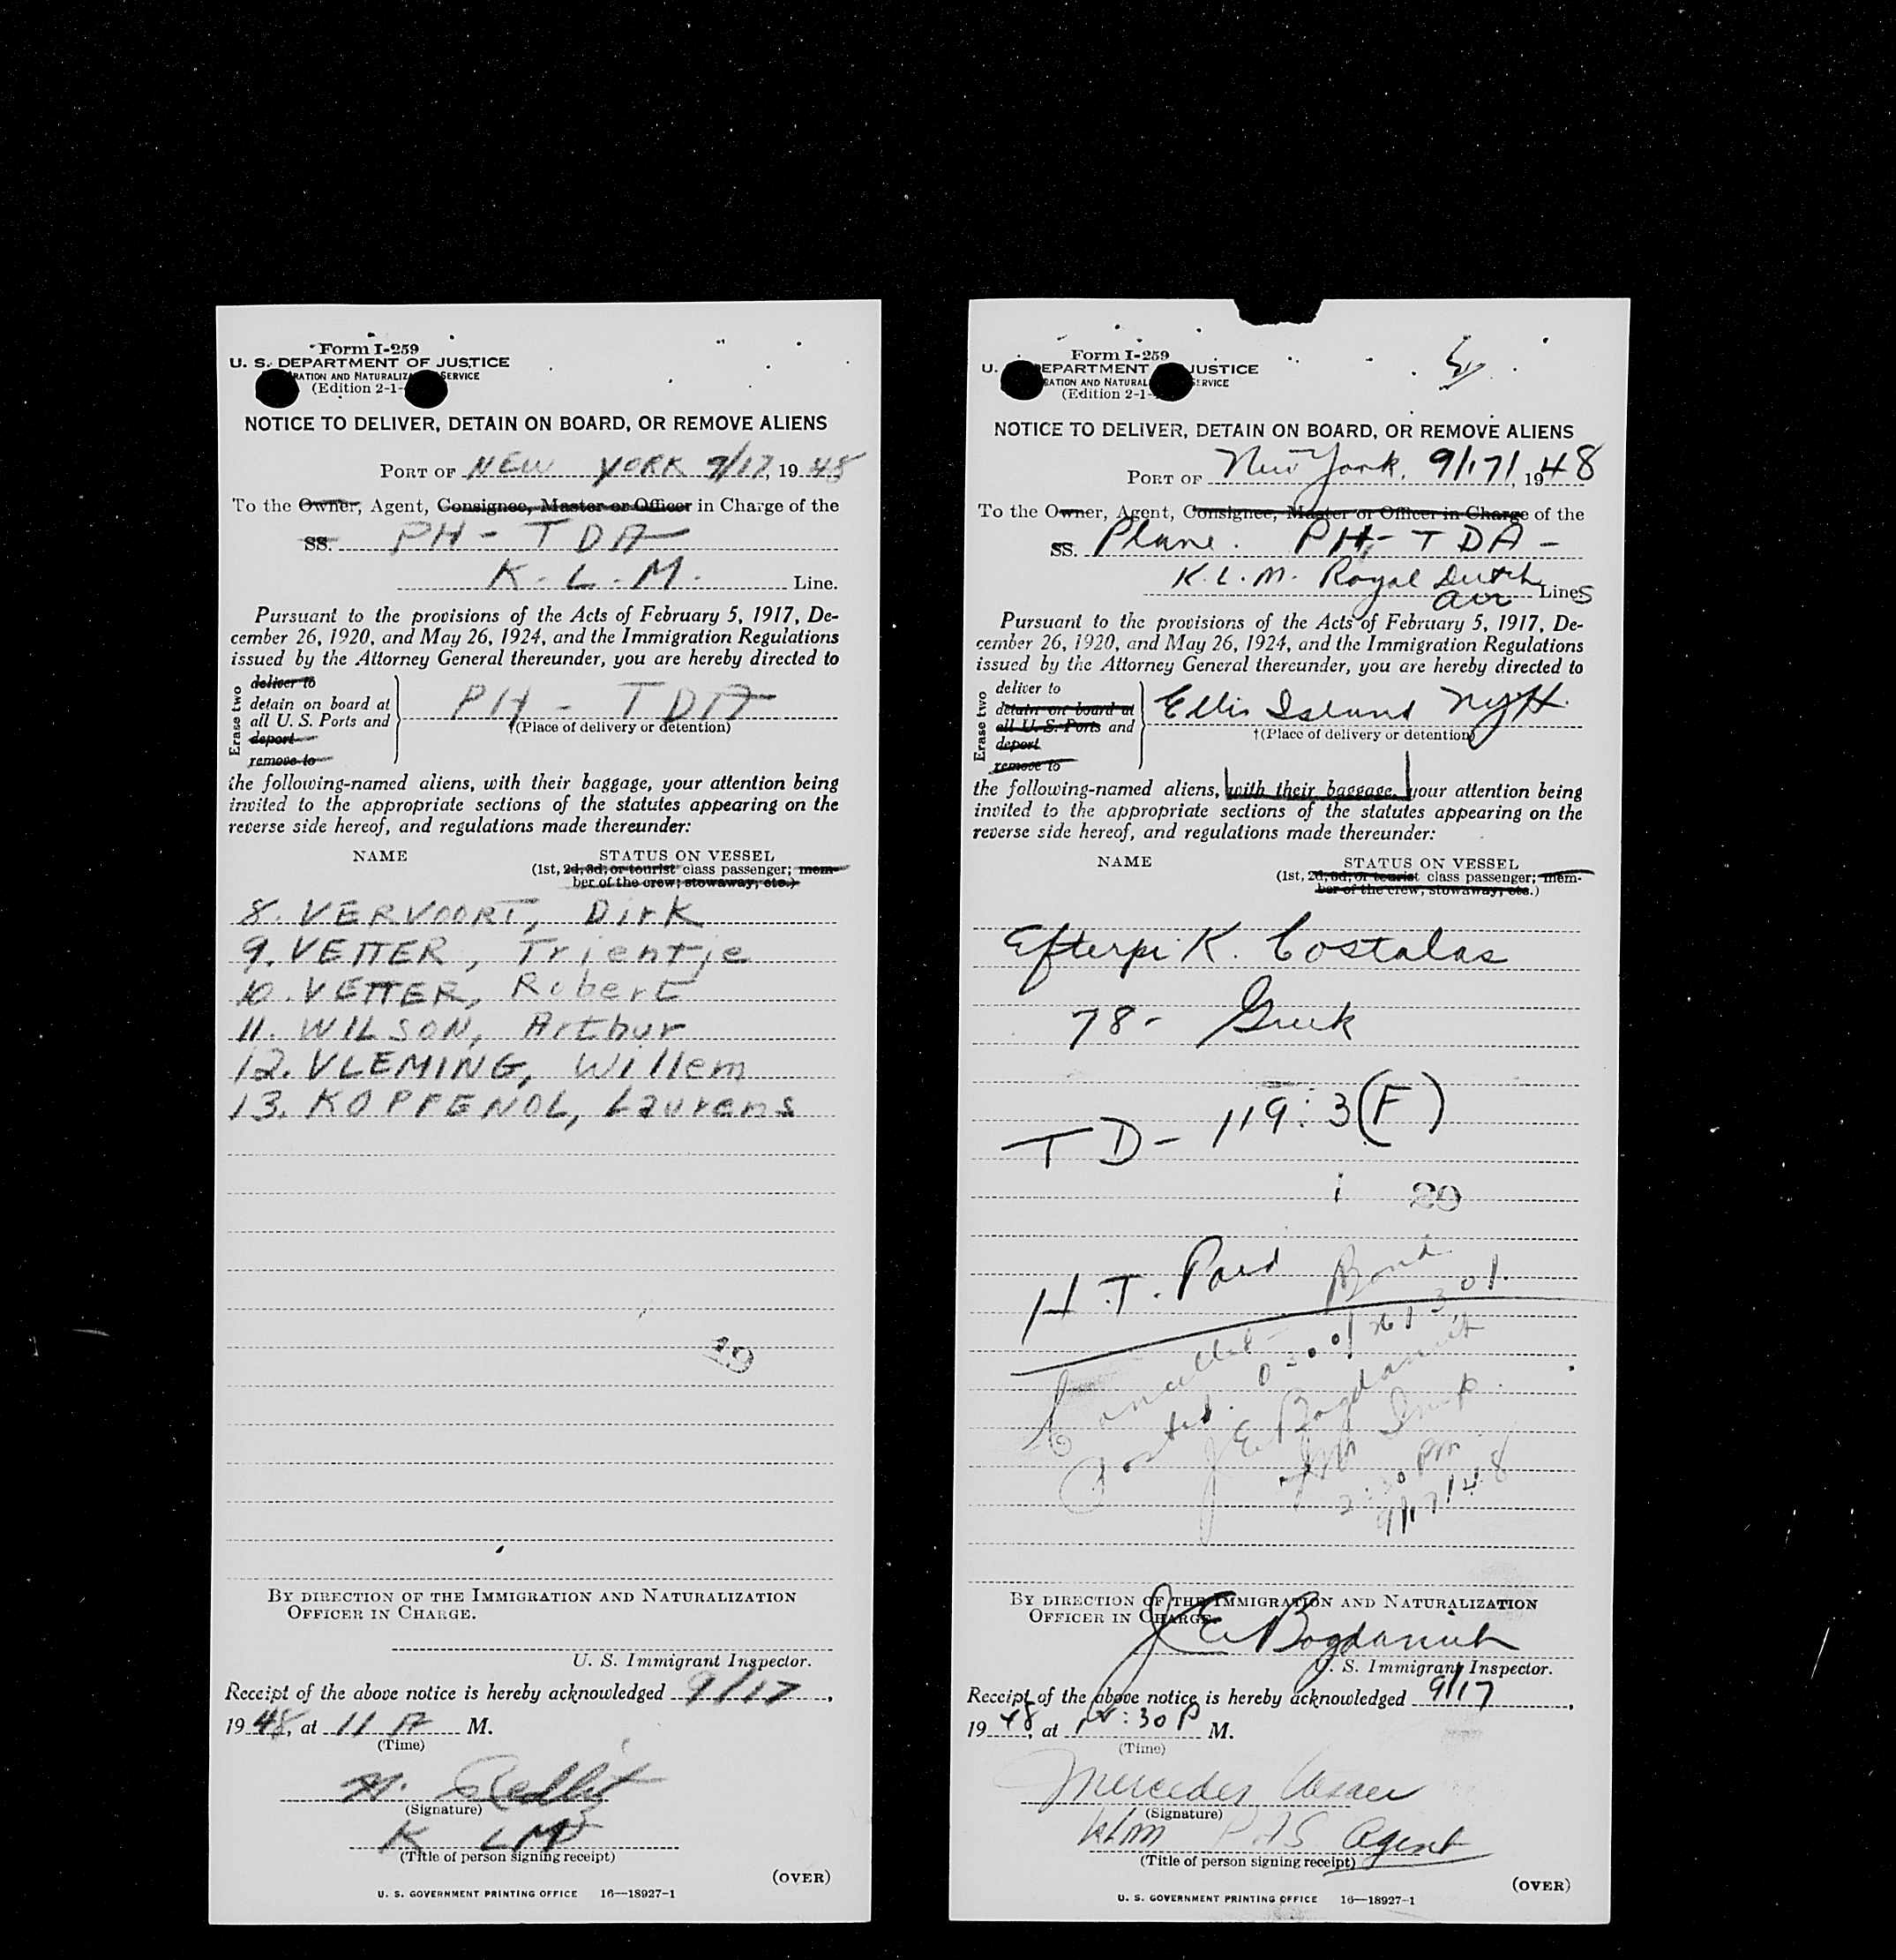 Form I-259
U. S. DEPARTMENT OF JUSTICE
RATION AND NATURALIZA SERVICE
(Edition 2-1-
NOTICE TO DELIVER, DETAIN ON BOARD, OR REMOVE ALIENS
PORT OF NEW YORK 9/17, 1948
To the Owner, Agent, Consignee, Master or Officer in Charge of the
SS. PH - TDA
K. L. M. Line.
Pursuant to the provisions of the Acts of February 5, 1917, De-
cember 26, 1920, and May 26, 1924, and the Immigration Regulations
issued by the Attorney General thereunder, you are hereby directed to
Erase two
deliver to
detain on board at
all U. S. Ports and
deport
remove to
PH - TDA
†(Place of delivery or detention)
the following-named aliens, with their baggage, your attention being
invited to the appropriate sections of the statutes appearing on the
reverse side hereof, and regulations made thereunder:
NAME STATUS ON VESSEL
(1st, 2d, 3d, or tourist class passenger; mem-
ber of the crew; stowaway, etc.)
8. VERVOORT, Dirk
9. VETTER, Trientje
10. VETTER, Robert
11. WILSON, Arthur
12. VLEMING, Willem
13. KOPPENOL, Laurens
19
BY DIRECTION OF THE IMMIGRATION AND NATURALIZATION
OFFICER IN CHARGE.
U. S. Immigrant Inspector.
Receipt of the above notice is hereby acknowledged 9/17,
1948, at 11 A M.
(Time)
(Signature)
K L M
(Title of person signing receipt)
(OVER)
U. S. GOVERNMENT PRINTING OFFICE 16—18927-1
Form I-259
U. EPARTMENT JUSTICE
RATION AND NATURAL SERVICE
(Edition 2-1-
NOTICE TO DELIVER, DETAIN ON BOARD, OR REMOVE ALIENS
PORT OF New York, 9/17/, 1948
To the Owner, Agent, Consignee, Master or Officer in Charge of the
SS. Plane. PH - TDA -
K.L.M. Royal Dutch
Air Lines
Pursuant to the provisions of the Acts of February 5, 1917, De-
cember 26, 1920, and May 26, 1924, and the Immigration Regulations
issued by the Attorney General thereunder, you are hereby directed to
Erase two
deliver to
detain on board at
all U. S. Ports and
deport
remove to
Ellis Island NYH.
†(Place of delivery or detention)
the following-named aliens, with their baggage, your attention being
invited to the appropriate sections of the statutes appearing on the
reverse side hereof, and regulations made thereunder:
NAME STATUS ON VESSEL
(1st, 2d, 3d, or tourist class passenger; mem-
ber of the crew, stowaway, etc.)
Efterpi K. Costalas
78 - Greek
TD - 119:3(F)
20
H.T. Paid Bond
Cancelled
Posted
J E Bogdanich
Imm Insp.
2:30 PM
9/17/48
BY DIRECTION OF THE IMMIGRATION AND NATURALIZATION
OFFICER IN CHARGE.
J E Bogdanich
U. S. Immigrant Inspector.
Receipt of the above notice is hereby acknowledged 9/17,
1948, at 12:30 P M.
(Time)
Mercedes
(Signature)
KLM Agent
(Title of person signing receipt)
(OVER)
U. S. GOVERNMENT PRINTING OFFICE 16—18927-1